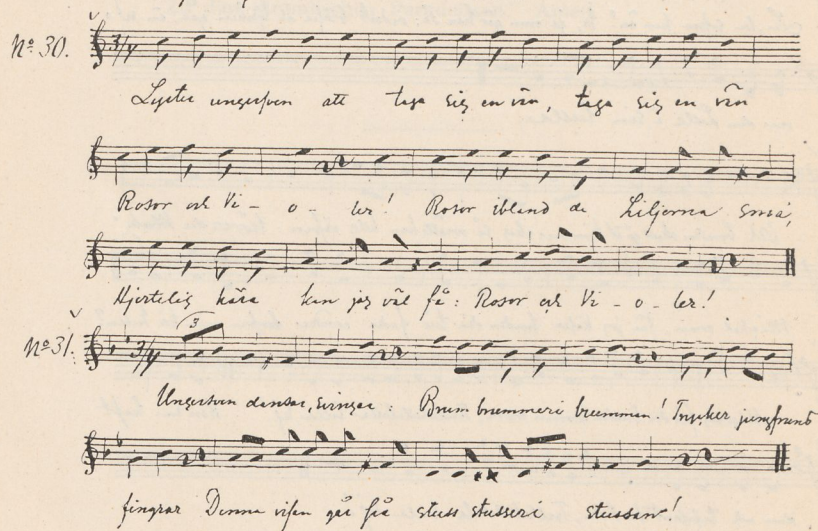 No 30.
3/4
Lyster ungersven att taga sig en vän, taga sig en vän
Rosor och Vi – o – ler! Rosor ibland de Liljerna små,
Hjertelig kära kan jag väl få: Rosor och Vi – o – ler!
No 31.
3/4
3
Ungersven dansar, svingar: Brum brummeri brumman! Trycker jungfruns
fingrar Denna visan går så stuss stusseri stussan!